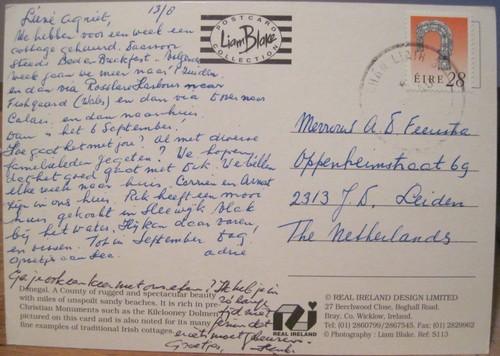 13/8
Lieve Agniet,
We hebben voor een week een
cottage gehuurd. Daarvoor
steeds Bed en Breakfast. Volgende
week gaan we meer naar 't Zuiden.
en dan via Rosslare Harbour naar
Fishguard (Wales) en dan via Dover naar
Calais, en dan naar huis.
Dan is het 6 September.
Hoe gaat het met jou? Al met diverse
familieleden gegeten? We hopen
dat het goed gaat met Erik. We bellen
elke week naar huis. Corrien en Arnout
zijn in ons huis. Rik heeft een mooi
huis gekocht in Sleeuwijk vlak
bij het water. Hij kan daar varen
en vissen. Tot in September. Dag
adrie
Ga je ook een keer met ons eten? Ik heb je in
zo lang
tijd niet
POSTCARD
Liam Blake
COLLECTION
ÉIRE 28
Mevrouw A.D. Feenstra
Oppenheimstraat 69
2313 J.D. Leiden
The Netherlands
Donegal. A County of rugged and spectacular beauty
with miles of unspoilt sandy beaches. It is rich in pre-
Christian Monuments such as the Kilclooney Dolmen
pictured on this card and is also noted for its many
fine examples of traditional Irish cottages.
© REAL IRELAND DESIGN LIMITED
27 Beechwood Close, Boghall Road,
Bray, Co. Wicklow, Ireland.
Tel: (01) 2860799/2867545. Fax: (01) 2829962
© Photography : Liam Blake. Ref: S113